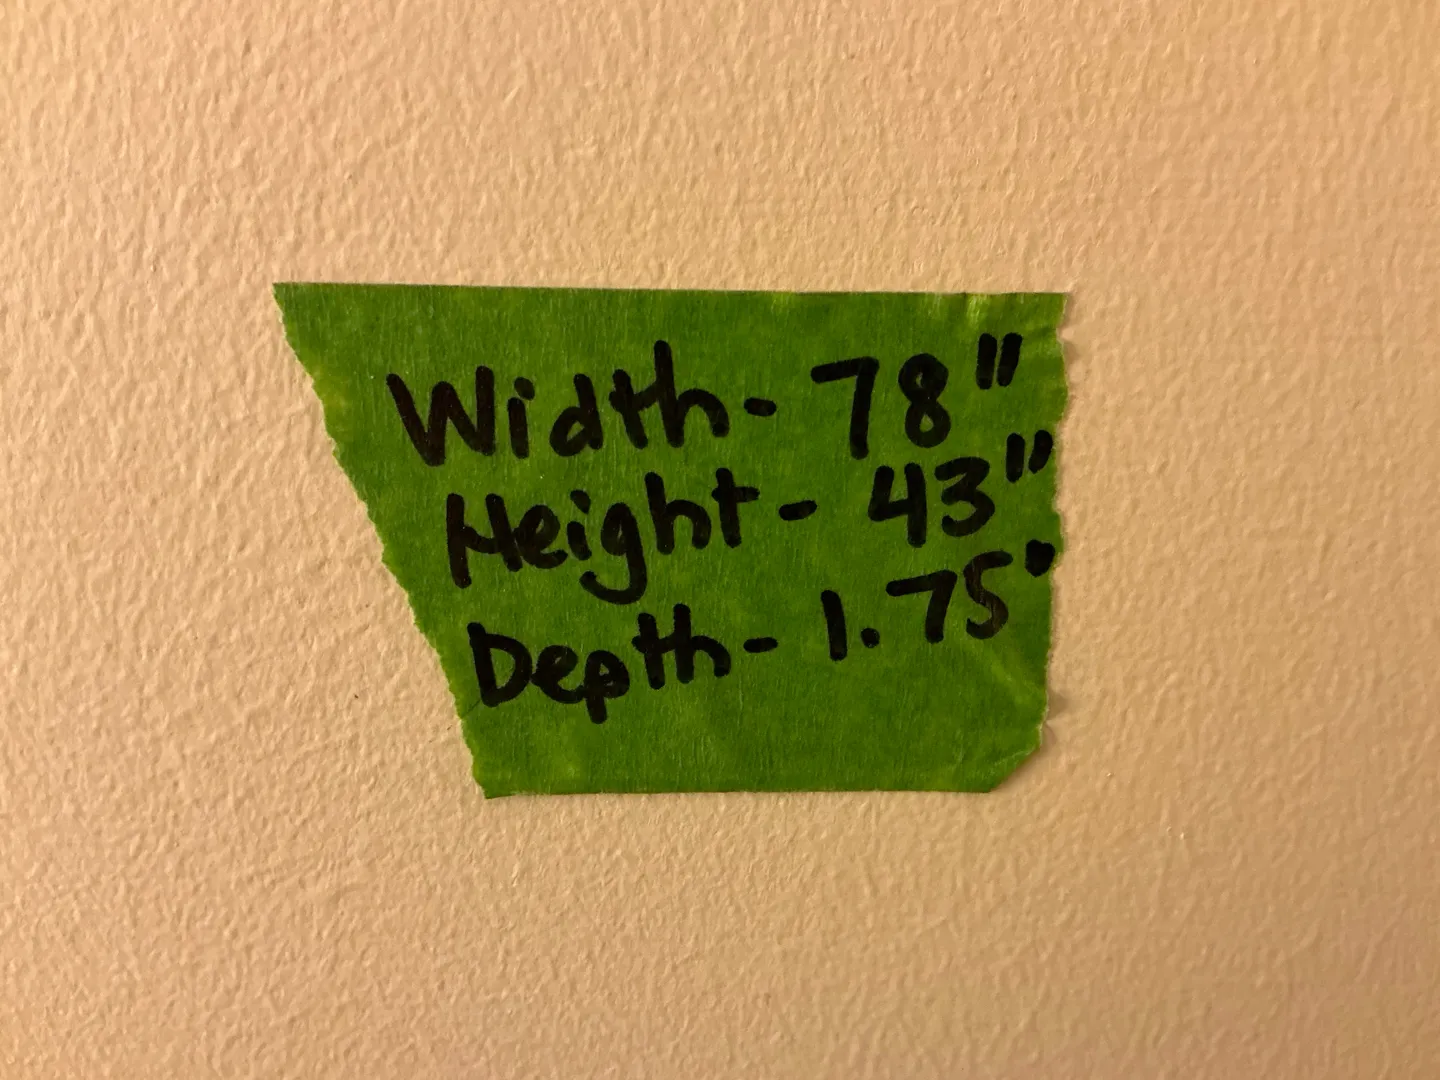 Width- 78"
Height- 43"
Depth- 1.75'